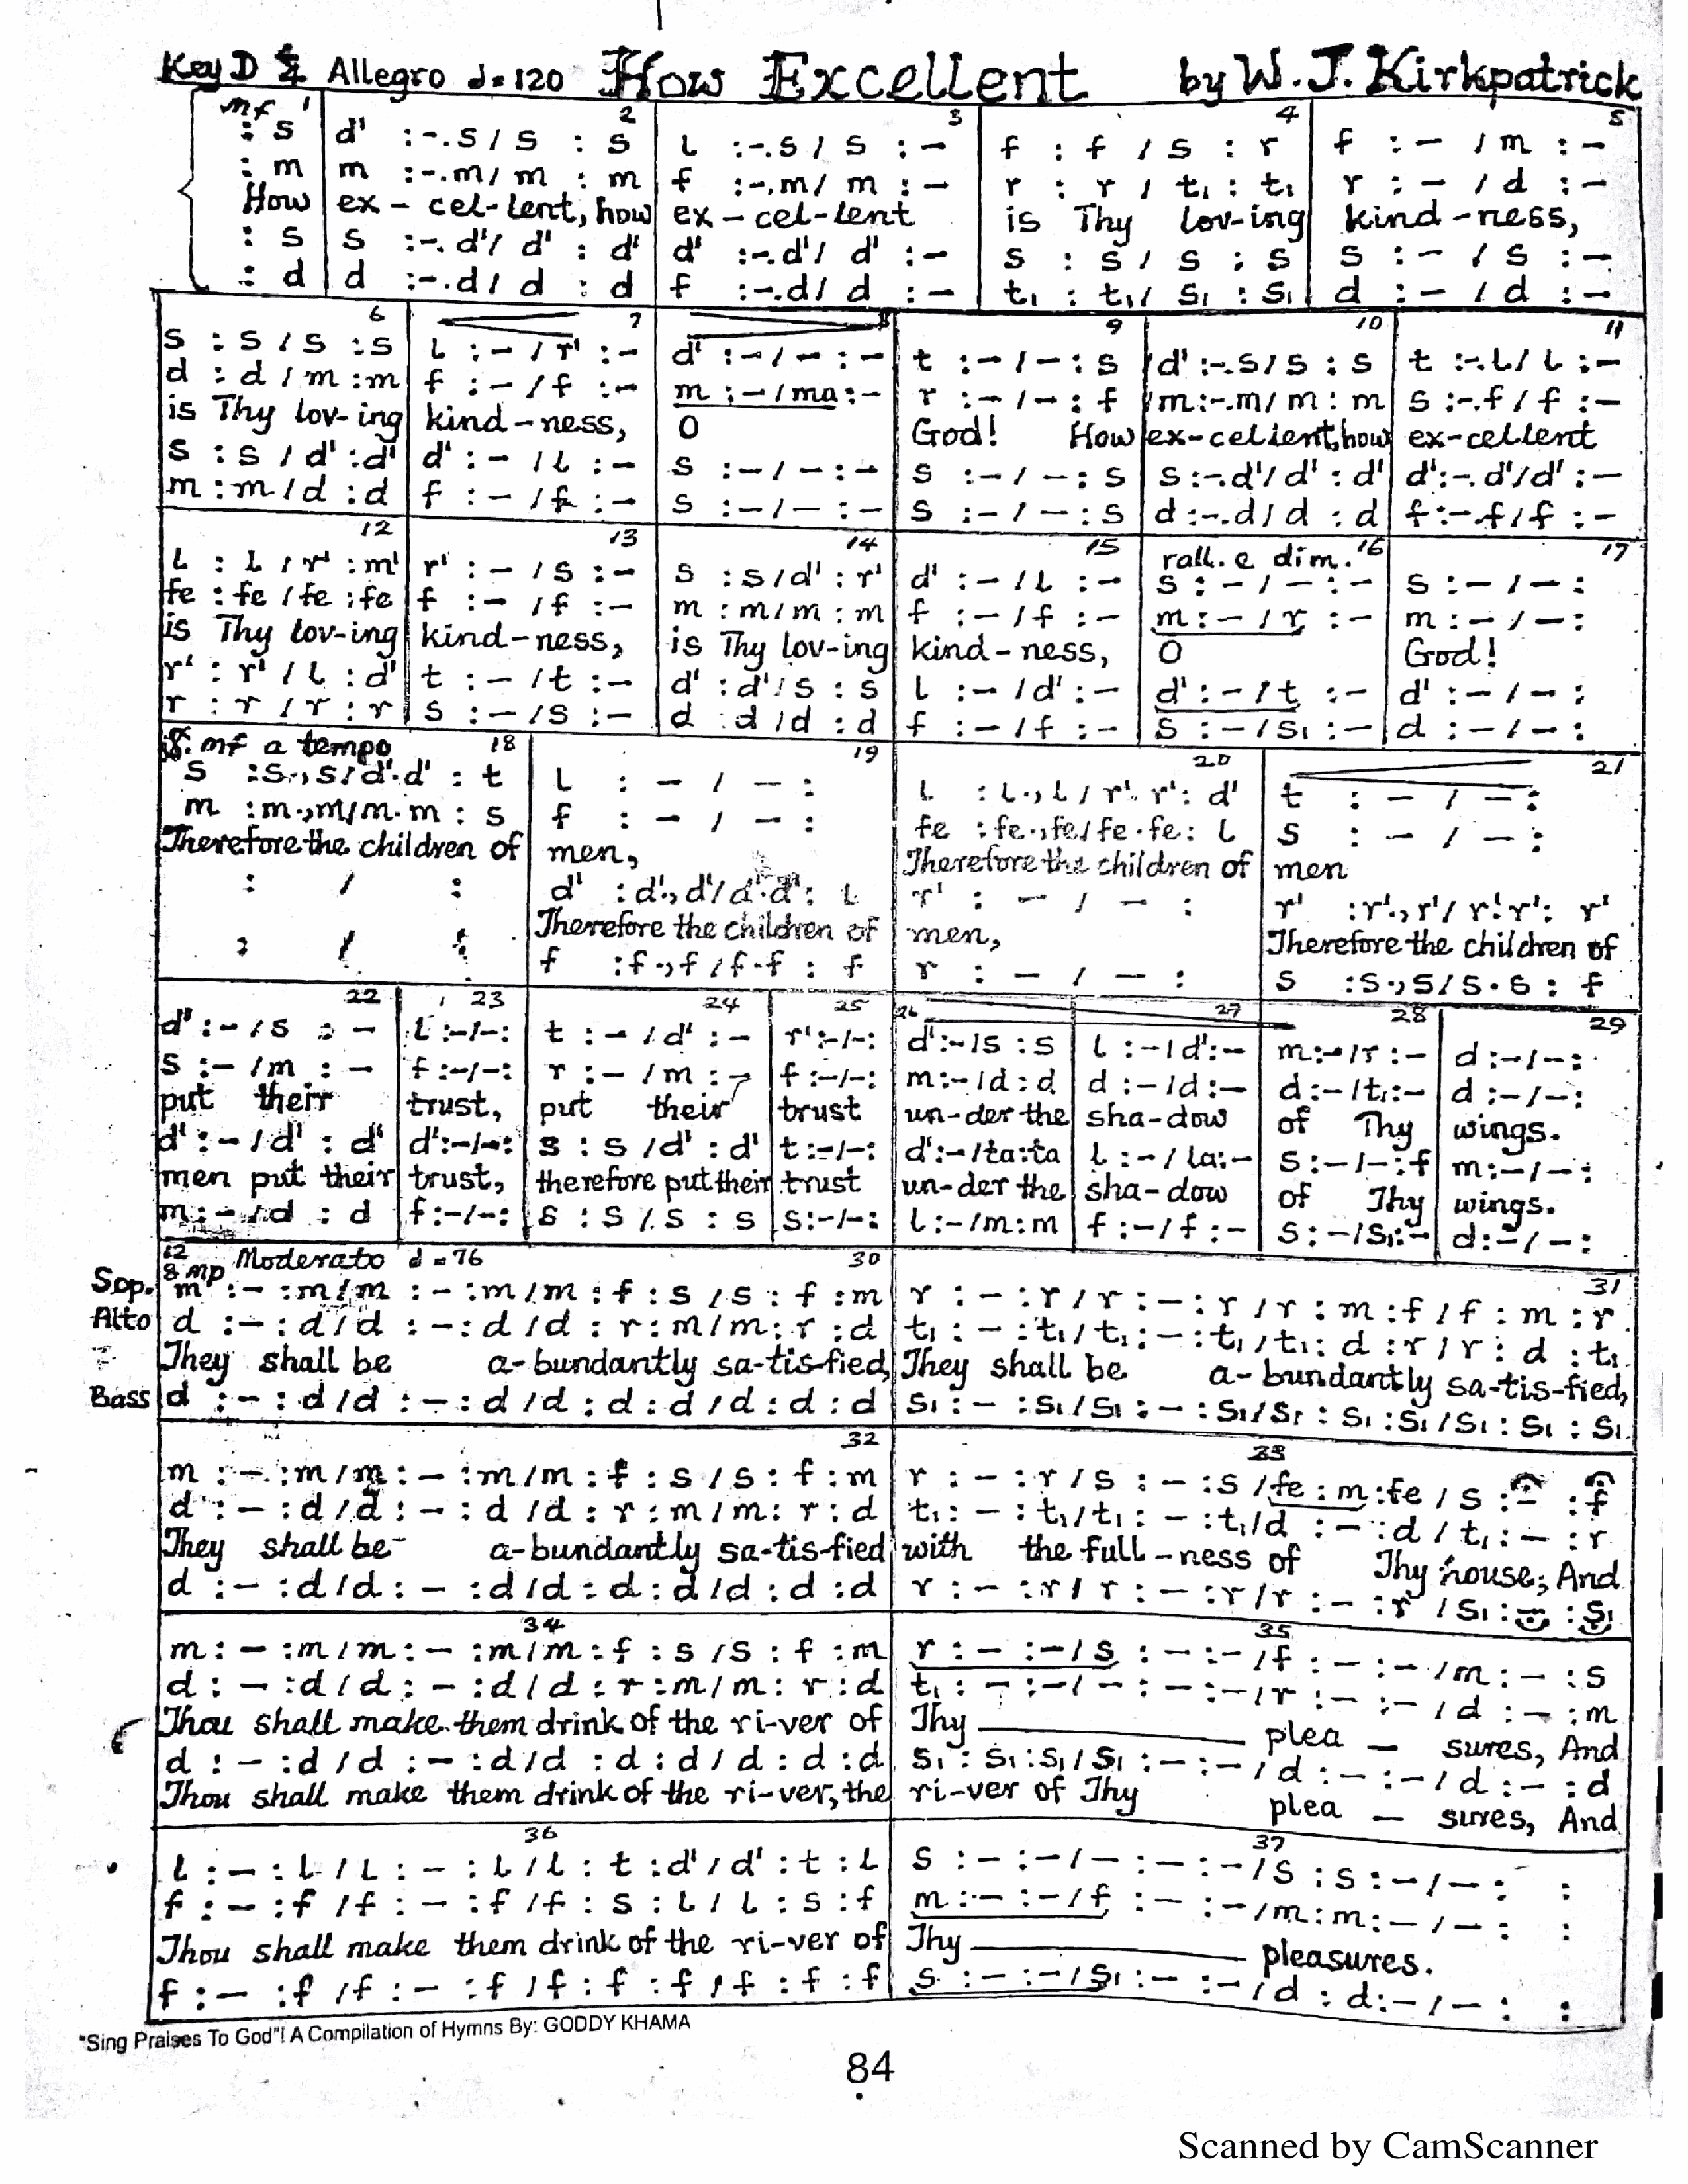 Key D 4/4 Allegro d=120 How Excellent by W.J. Kirkpatrick
mf 1 2 3 4 5
: s | d' :-.s / s : s | l :-.s / s : - | f : f / s : r | f : - / m : -
: m | m :-.m / m : m | f :-.m / m : - | r : r / t₁ : t₁ | r : - / d : -
How | ex - cel-lent, how | ex - cel-lent | is Thy lov-ing | kind-ness,
: s | s :-.d' / d' : d' | d' :-.d' / d' : - | s : s / s : s | s : - / s : -
: d | d :-.d / d : d | f :-.d / d : - | t₁ : t₁ / s₁ : s₁ | d : - / d : -
6 7 8 9 10 11
s : s / s : s | l : - / r' : - | d' : - / - : - | t : - / - : s | d' :-.s / s : s | t :-.l / l : -
d : d / m : m | f : - / f : - | m : - / ma : - | r : - / - : f | m :-.m / m : m | s :-.f / f : -
is Thy lov-ing | kind-ness, | O | God! How | ex-cellent, how | ex-cellent
s : s / d' : d' | d' : - / l : - | s : - / - : - | s : - / - : s | s :-.d' / d' : d' | d' :-.d' / d' : -
m : m / d : d | f : - / f : - | s : - / - : - | s : - / - : s | d :-.d / d : d | f :-.f / f : -
12 13 14 15 rall. e dim. 16 17
l : l / r' : m' | r' : - / s : - | s : s / d' : r' | d' : - / l : - | s : - / - : - | s : - / - :
fe : fe / fe : fe | f : - / f : - | m : m / m : m | f : - / f : - | m : - / r : - | m : - / - :
is Thy lov-ing | kind-ness, | is Thy lov-ing | kind-ness, | O | God!
r' : r' / l : d' | t : - / t : - | d' : d' / s : s | l : - / d' : - | d' : - / t : - | d' : - / - :
r : r / r : r | s : - / s : - | d : d / d : d | f : - / f : - | s : - / s₁ : - | d : - / - :
mf a tempo 18 19 20 21
s : s.,s / d'.d' : t | l : - / - : | l : l.,l / r'.r' : d' | t : - / - :
m : m.,m / m.m : s | f : - / - : | fe : fe.,fe / fe.fe : l | s : - / - :
Therefore the children of | men, | Therefore the children of | men
: / : | d' : d'.,d' / d'.d' : l | r' : - / - : | r' : r'.,r' / r'.r' : r'
Therefore the children of | men, | Therefore the children of
: / : | f : f.,f / f.f : f | r : - / - : | s : s.,s / s.s : f
22 23 24 25 26 27 28 29
d' : - / s : - | l : - / - : | t : - / d' : - | r' : - / - : | d' : - / s : s | l : - / d' : - | m : - / r : - | d : - / - :
s : - / m : - | f : - / - : | r : - / m : - | f : - / - : | m : - / d : d | d : - / d : - | d : - / t₁ : - | d : - / - :
put their | trust, | put their | trust | un-der the | sha-dow | of Thy | wings.
d' : - / d' : d' | d' : - / - : | s : s / d' : d' | t : - / - : | d' : - / ta : ta | l : - / la : - | s : - / - : f | m : - / - :
men put their | trust, | therefore put their | trust | un-der the | sha-dow | of Thy | wings.
m : - / d : d | f : - / - : | s : s / s : s | s : - / - : | l : - / m : m | f : - / f : - | s : - / s₁ : - | d : - / - :
12/8 mp Moderato d=76 30 31
Sop. m : - : m / m : - : m / m : f : s / s : f : m | r : - : r / r : - : r / r : m : f / f : m : r
Alto d : - : d / d : - : d / d : r : m / m : r : d | t₁ : - : t₁ / t₁ : - : t₁ / t₁ : d : r / r : d : t₁
They shall be a-bundantly sa-tis-fied, | They shall be a-bundantly sa-tis-fied,
Bass d : - : d / d : - : d / d : d : d / d : d : d | s₁ : - : s₁ / s₁ : - : s₁ / s₁ : s₁ : s₁ / s₁ : s₁ : s₁
32 33
m : - : m / m : - : m / m : f : s / s : f : m | r : - : r / s : - : s / fe : m : fe / s : - : f
d : - : d / d : - : d / d : r : m / m : r : d | t₁ : - : t₁ / t₁ : - : t₁ / d : - : d / t₁ : - : r
They shall be a-bundantly sa-tis-fied | with the full-ness of Thy house; And
d : - : d / d : - : d / d : d : d / d : d : d | r : - : r / r : - : r / r : - : r / s₁ : - : s₁
34 35
m : - : m / m : - : m / m : f : s / s : f : m | r : - : - / s : - : - / f : - : - / m : - : s
d : - : d / d : - : d / d : r : m / m : r : d | t₁ : - : - / - : - : - / r : - : - / d : - : m
Thou shall make them drink of the ri-ver of | Thy plea - sures, And
d : - : d / d : - : d / d : d : d / d : d : d | s₁ : s₁ : s₁ / s₁ : - : - / d : - : - / d : - : d
Thou shall make them drink of the ri-ver, the | ri-ver of Thy plea - sures, And
36 37
l : - : l / l : - : l / l : t : d' / d' : t : l | s : - : - / - : - : - / s : s : - / - : :
f : - : f / f : - : f / f : s : l / l : s : f | m : - : - / f : - : - / m : m : - / - : :
Thou shall make them drink of the ri-ver of | Thy pleasures.
f : - : f / f : - : f / f : f : f / f : f : f | s : - : - / s₁ : - : - / d : d : - / - : :
"Sing Praises To God"! A Compilation of Hymns By: GODDY KHAMA
84
Scanned by CamScanner